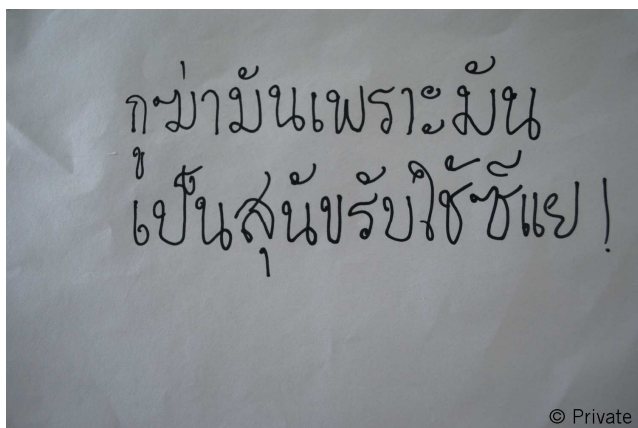 กูฆ่ามันเพราะมัน
เป็นสุนัขรับใช้ซีแย!
© Private